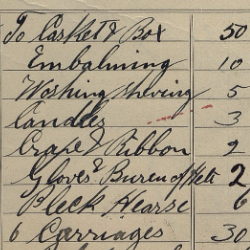 To Casket & Box 50
Embalming 10
Washing Shaving 5
Candles 3
Crape & Ribbon 2
Gloves & Buren of Hett 2
Black Hearse 6
6 Carriages 30